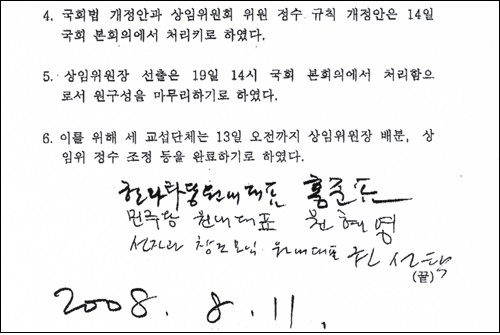 4. 국회법 개정안과 상임위원회 위원 정수 규칙 개정안은 14일
국회 본회의에서 처리키로 하였다.
5. 상임위원장 선출은 19일 14시 국회 본회의에서 처리함으
로서 원구성을 마무리하기로 하였다.
6. 이를 위해 세 교섭단체는 13일 오전까지 상임위원장 배분, 상
임위 정수 조정 등을 완료하기로 하였다.
한나라당 원내대표 홍준표
민주당 원내대표 원혜영
선진과 창조모임 원내대표 권선택
(끝)
2008. 8. 11.